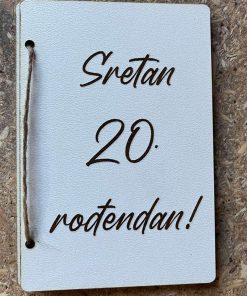 Sretan
20.
rođendan!